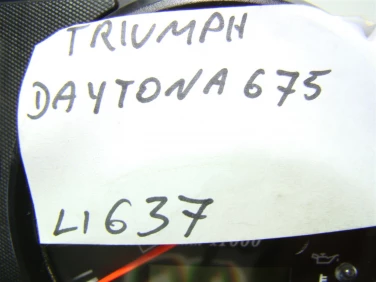 TRIUMPH
DAYTONA 675
LI 637